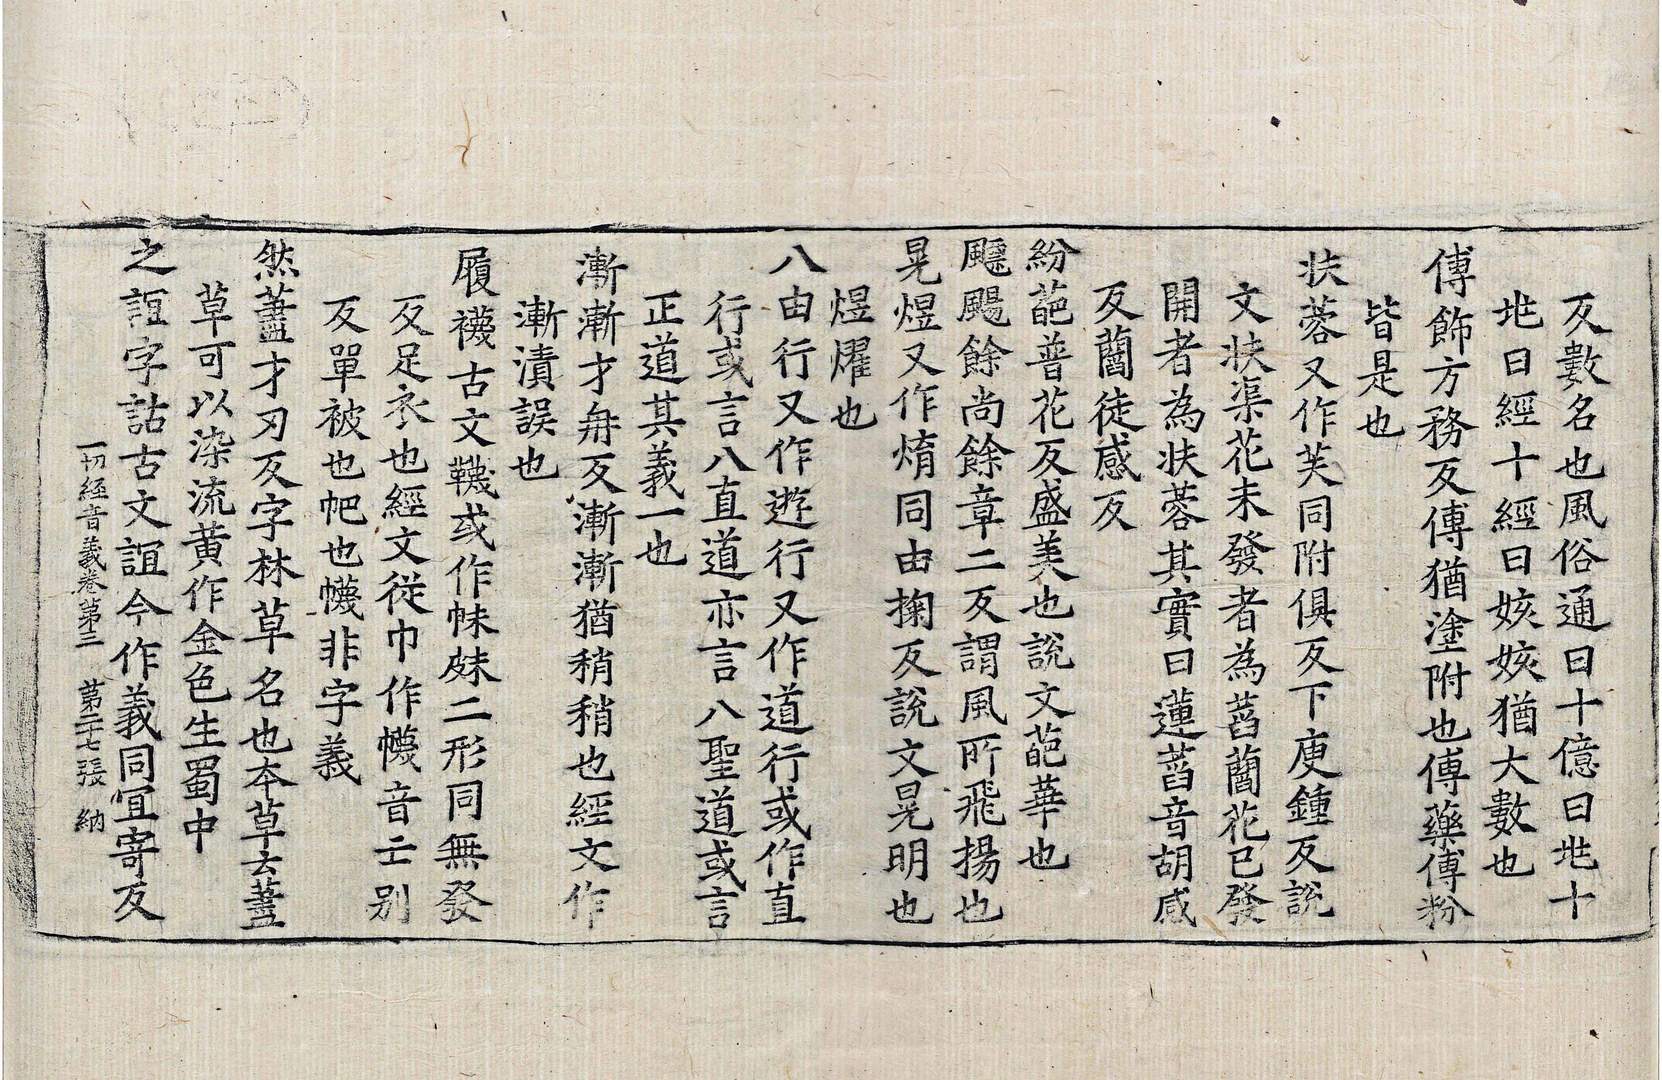 反數名也風俗通曰十億曰兆十
兆曰經十經曰姟姟猶大數也
傅飾方務反傅猶塗附也傅藥傅粉
皆是也
扶蓉又作芙同附俱反下庾鍾反說
文扶渠花未發者為萏䕞花已發
開者為扶蓉其實曰蓮萏音胡感
反䕞徒感反
紛葩普花反盛美也說文葩華也
飃颺餘尚餘章二反謂風所飛揚也
晃煜又作焴同由掬反說文晃明也
煜燿也
八由行又作遊行又作道行或作直
行或言八直道亦言八聖道或言
正道其義一也
漸漸才冉反漸漸猶稍稍也經文作
漸漬誤也
履襪古文韈或作帓䩋二形同無發
反足衣也經文從巾作幭音亡別
反單被也帊也幭非字義
然藎才刃反字林草名也本草云藎
草可以染流黃作金色生蜀中
之誼字詁古文誼今作義同宜寄反
一切經音義卷第三　第二十七張　納